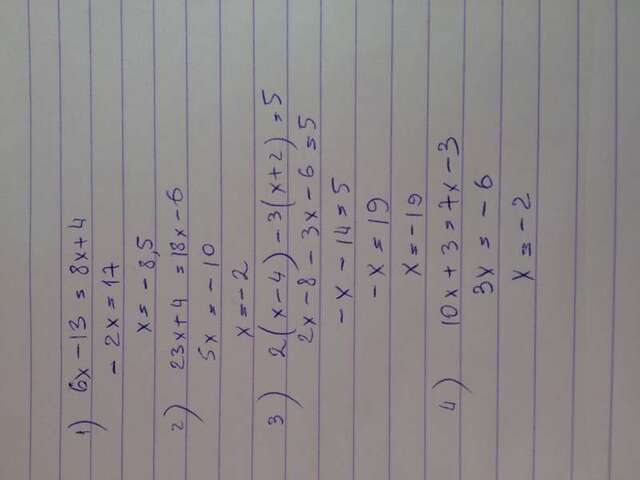 1) 6x - 13 = 8x + 4
- 2x = 17
x = - 8,5
2) 23x + 4 = 18x - 6
5x = - 10
x = - 2
3) 2(x - 4) - 3(x + 2) = 5
2x - 8 - 3x - 6 = 5
- x - 14 = 5
- x = 19
x = - 19
4) 10x + 3 = 7x - 3
3x = - 6
x = - 2